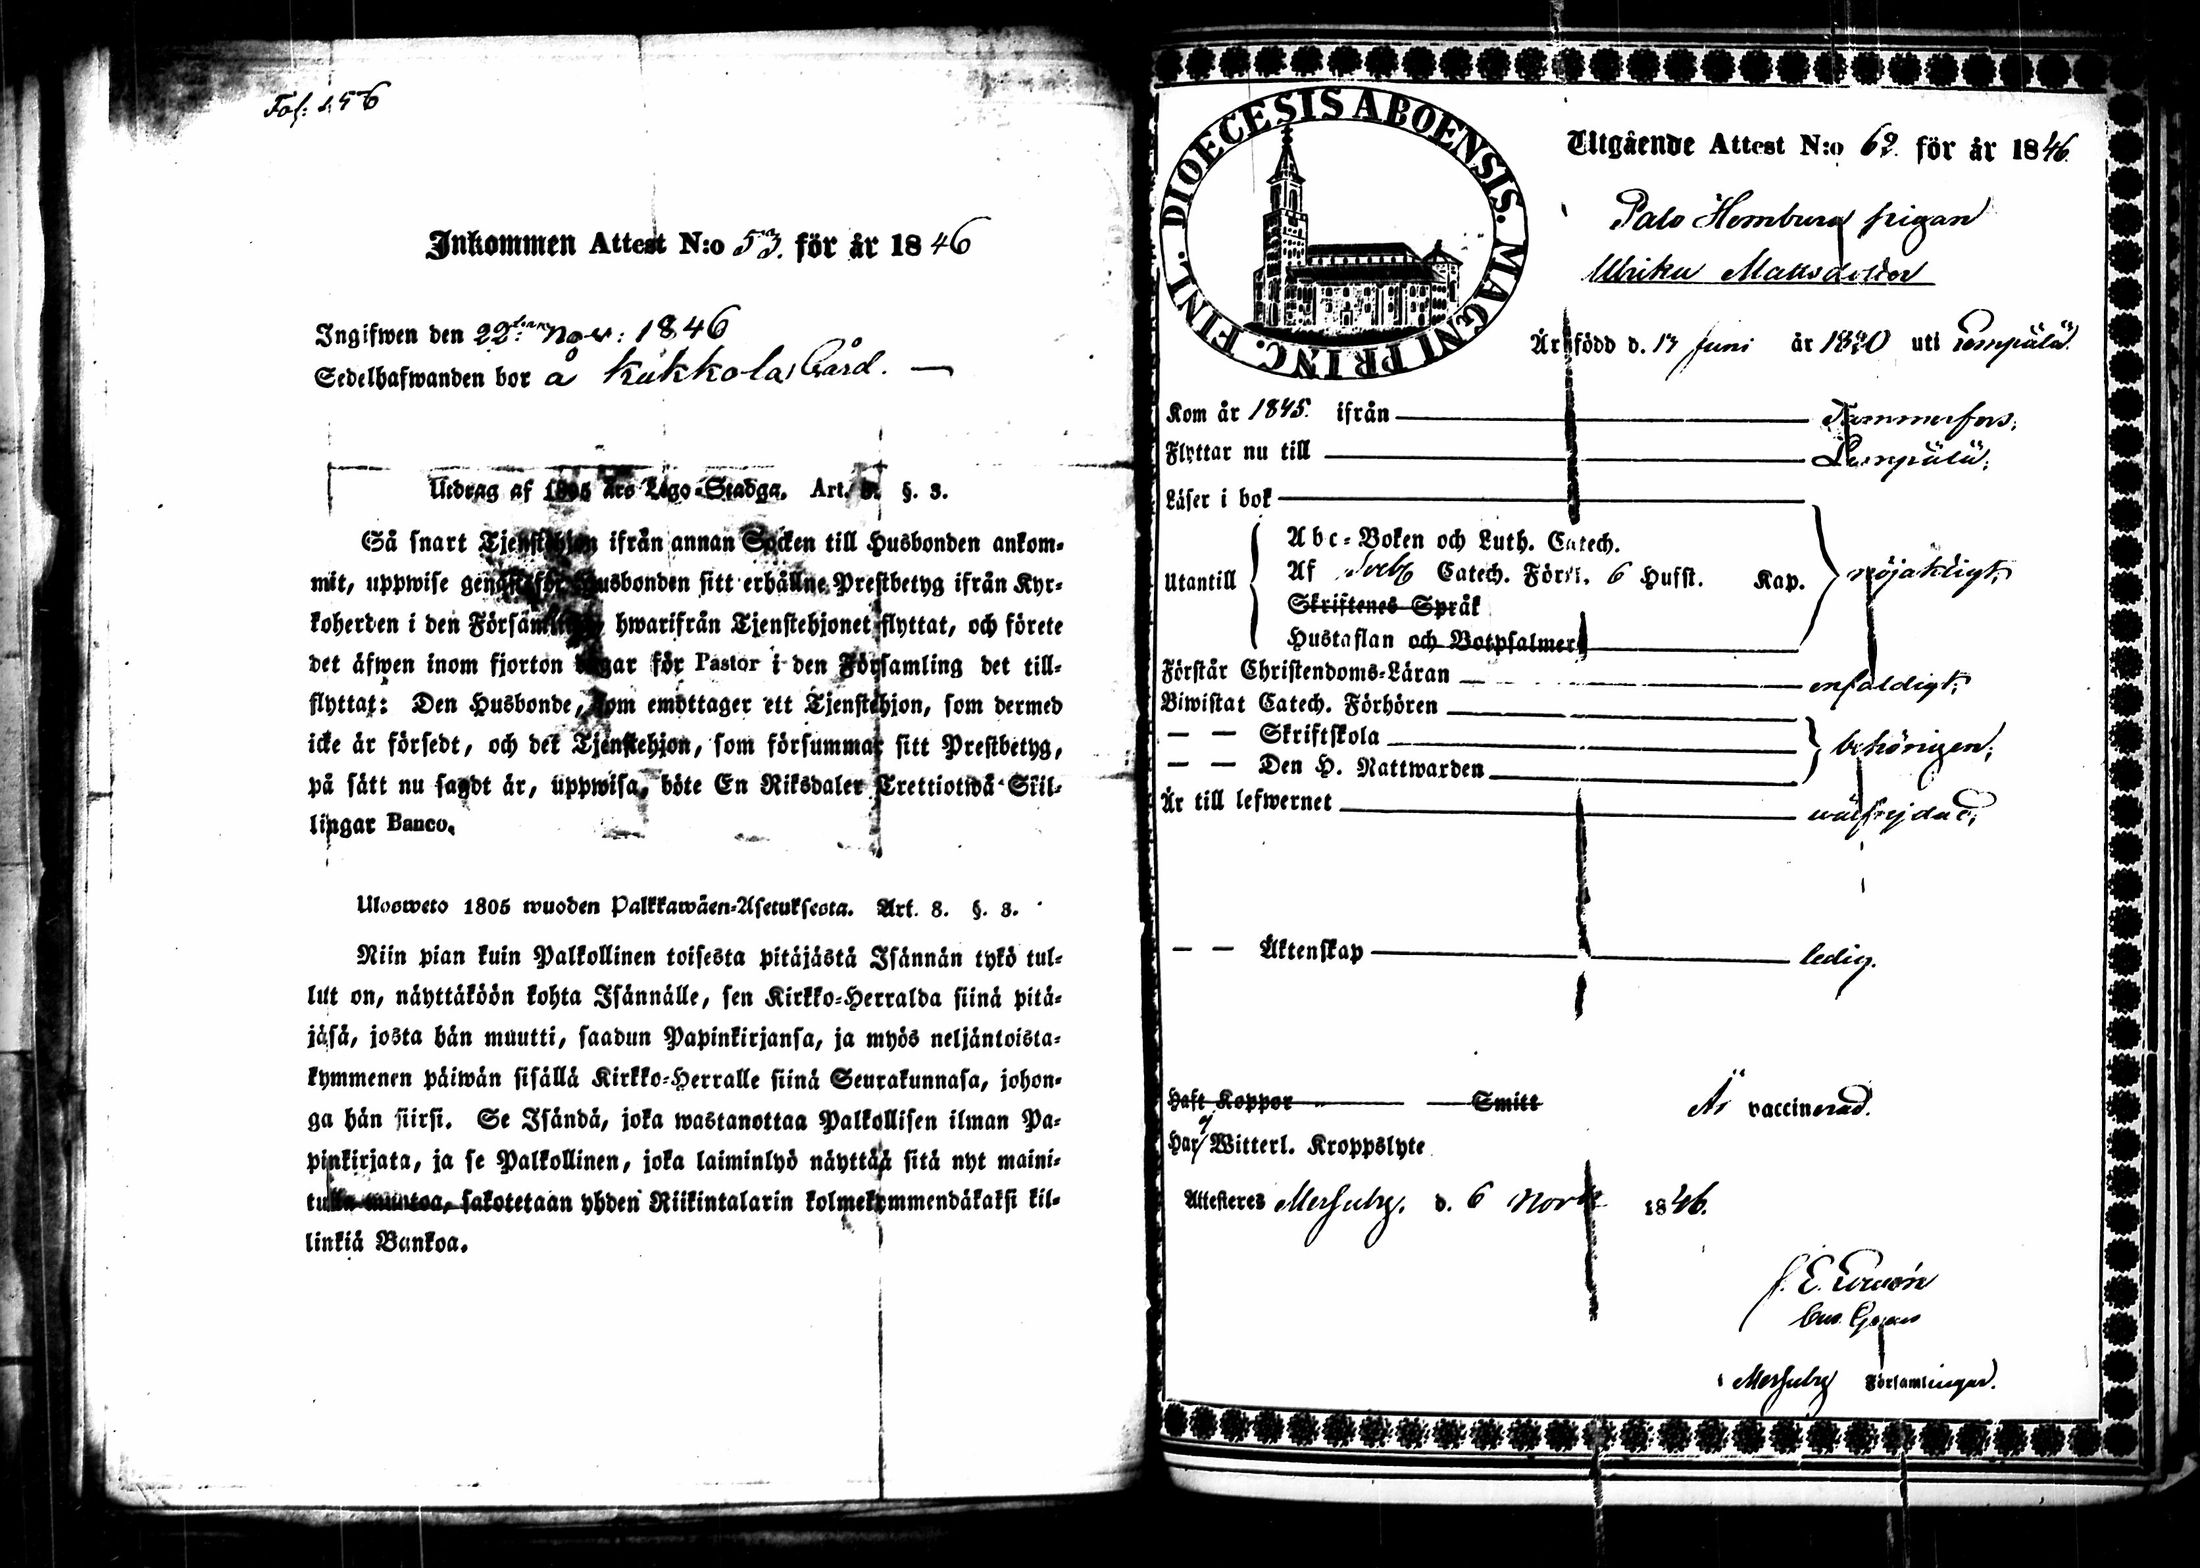 Fol: 156
Inkommen Attest N:o 53. för år 1846
Ingifwen den 22 Nov: 1846
Sedelhafwanden bor å Kukkola Gård. —
Utdrag af 1805 års Lego-Stadga. Art. 8. §. 3.
Så snart Tjenstehjon ifrån annan Socken till Husbonden ankom-
mit, uppwise genast för Husbonden sitt erhållne Prestbetyg ifrån Kyr-
koherden i den Församling, hwarifrån Tjenstehjonet flyttat, och förete
det äfwen inom fjorton dagar för Pastor i den Församling det till-
flyttat: Den Husbonde, som emottager ett Tjenstehjon, som dermed
icke är försedt, och det Tjenstehjon, som försummar sitt Prestbetyg,
på sätt nu sagdt är, uppwisa, böte En Riksdaler Trettiotwå Skil-
lingar Banco.
Ulosweto 1805 wuoden Palkkawäen-Asetuksesta. Art. 8. §. 3.
Niin pian kuin Palkollinen toisesta pitäjästä Isännän tykö tul-
lut on, näyttäköön kohta Isännälle, sen Kirkko-Herralda siinä pitä-
jäsä, josta hän muutti, saadun Papinkirjansa, ja myös neljäntoista-
kymmenen päiwän sisällä Kirkko-Herralle siinä Seurakunnasa, johon-
ga hän siirsi. Se Isändä, joka wastanottaa Palkollisen ilman Pa-
pinkirjata, ja se Palkollinen, joka laiminlyö näyttää sitä nyt maini-
tulla muotoa, sakotetaan yhden Riikintalarin kolmekymmendäkaksi kil-
linkiä Bankoa.
DIOECESIS ABOENSIS. MAGNI PRINC. FINL.
Utgående Attest N:o 62. för år 1846.
Palo Homburg pigan
Ulrika Mattsdotter
Är född d. 13 Juni år 1820 uti Lempälä
Kom år 1845. ifrån Tammerfors;
Flyttar nu till Lempälä;
Läser i bok
Utantill
Abc-Boken och Luth. Catech.
Af Sveb Catech. Förkl. 6 Hufst. Kap. nöjaktigt;
Skriftenes Språk
Hustaflan och Botpsalmer
Förstår Christendoms-Läran enfaldigt;
Biwistat Catech. Förhören
— — Skriftskola behörigen;
— — Den H. Nattwarden
Är till lefwernet wälfrejdad;
— — Äktenskap ledig.
Haft Koppor Smitt Är vaccinerad.
Har ej Witterl. Kroppslyte
Attesteres Messuby. d. 6 Nov 1846.
i Messuby Församlingar.